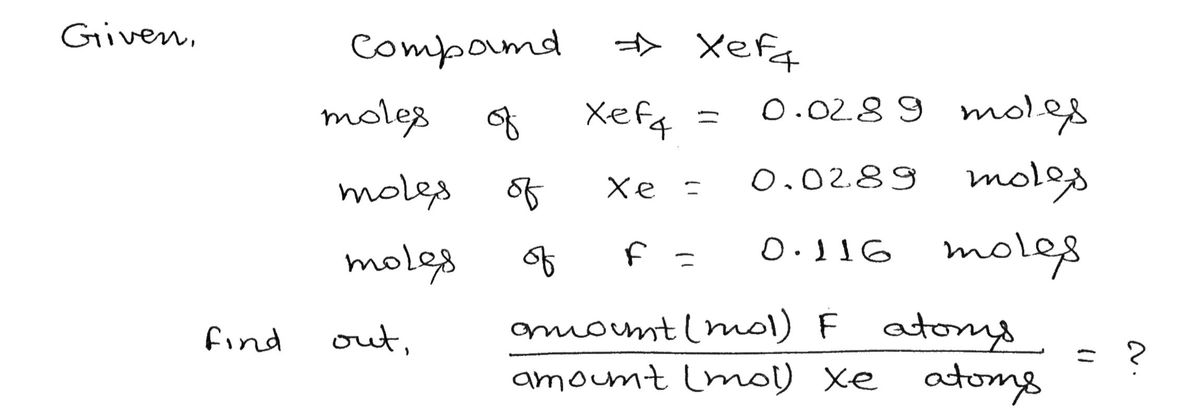 Given, Compound ⇒ XeF4
moles of XeF4 = 0.0289 moles
moles of Xe = 0.0289 moles
moles of F = 0.116 moles
find out, amount (mol) F atoms / amount (mol) Xe atoms = ?